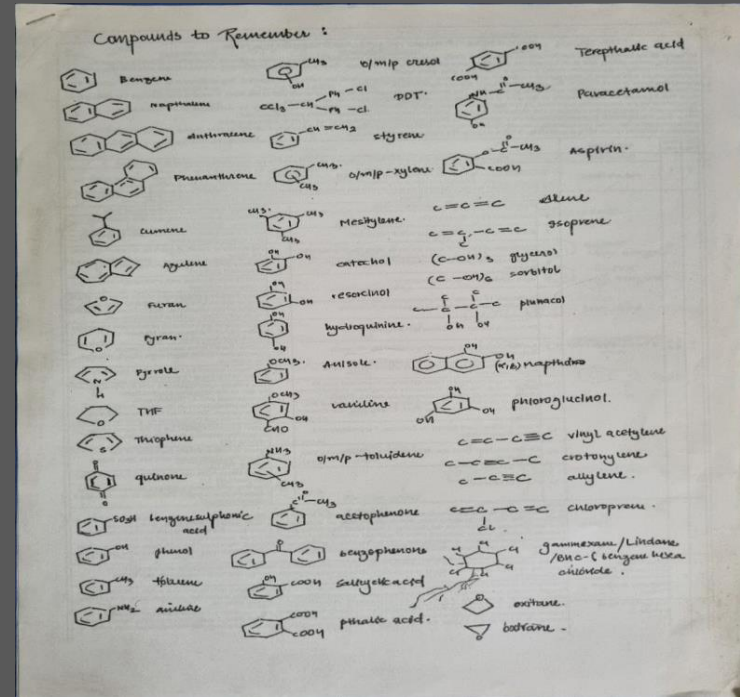 Compounds to Remember :
Benzene
Napthalene
Anthracene
Phenanthrene
Cumene
Azulene
Furan
Pyran.
Pyrrole
N
H
O
THF
Thiophene
S
quinone
O
O
SO3H benzenesulphonic acid
OH phenol
CH3 toluene
NH2 aniline
CH3
OH
o/m/p cresol
CCl3-CH
Ph-Cl
Ph-Cl.
DDT.
CH=CH2 styrene
CH3.
CH3
o/m/p-xylene
CH3.
CH3
CH3
Mesitylene.
OH
OH
catechol
OH
OH
resorcinol
OH
OH
hydroquinine.
OCH3.
Anisole.
OCH3
OH
CHO
NH3
CH3
o/m/p-toluidene
O
C-CH3
acetophenone
O
benzophenone
OH
COOH
salicylic acid
COOH
COOH
pthalic acid.
COOH
COOH
Terepthalic acid
NH-C-CH3
O
OH
Paracetamol
O-C-CH3
O
COOH
Aspirin.
C=C=C
C=C-C=C
C
Isoprene
(C-OH)3 glycerol
(C-OH)6 sorbitol
C C
C-C-C-C
OH OH
OH
OH
OH
OH
OH
phloroglucinol.
C=C-C≡C vinyl acetylene
C-C≡C-C crotonylene
C-C≡C allylene.
C=C-C=C
Cl
gammexane/Lindane
/BHC-( benzene hexa
chloride.
oxitane.